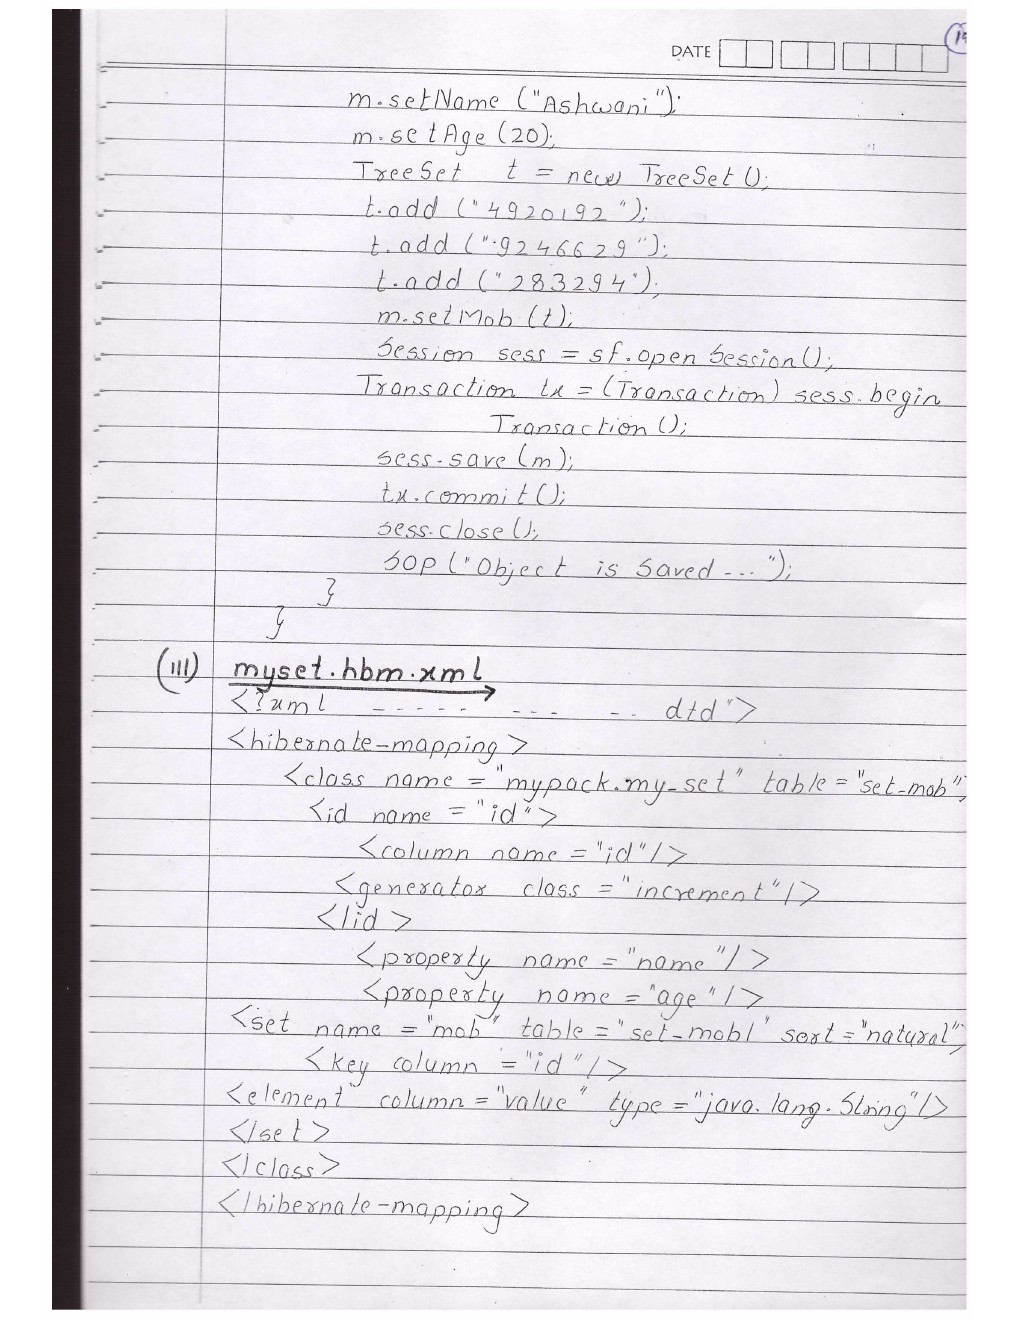 DATE
m.setName ("Ashwani");
m.setAge (20);
TreeSet t = new TreeSet ();
t.add ("4920192");
t.add ("9246629");
t.add ("283294");
m.setMob (t);
Session sess = sf.open Session();
Transaction tx = (Transaction) sess.begin
Transaction ();
sess.save (m);
tx.commit ();
sess.close ();
SOP ("Object is Saved ... ");
}
}
(III) myset.hbm.xml
<?xml ----- --- -- dtd">
<hibernate-mapping>
<class name = "mypack.my_set" table = "set-mob"
<id name = "id">
<column name = "id"/>
<generator class = "increment"/>
</id>
<property name = "name"/>
<property name = "age"/>
<set name = "mob" table = "set-mob1" sort = "natural"
<key column = "id"/>
<element column = "value" type = "java.lang.String"/>
</set>
</class>
</hibernate-mapping>